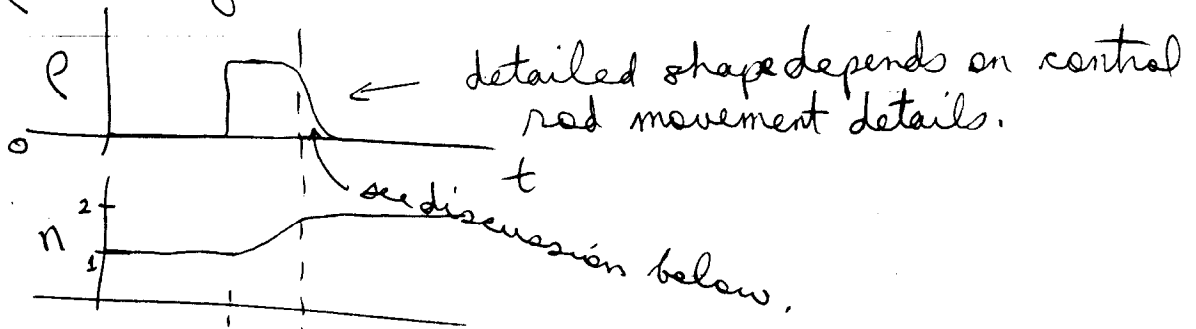 ρ
detailed shape depends on control
rod movement details.
0
t
see discussion below.
2
n
1